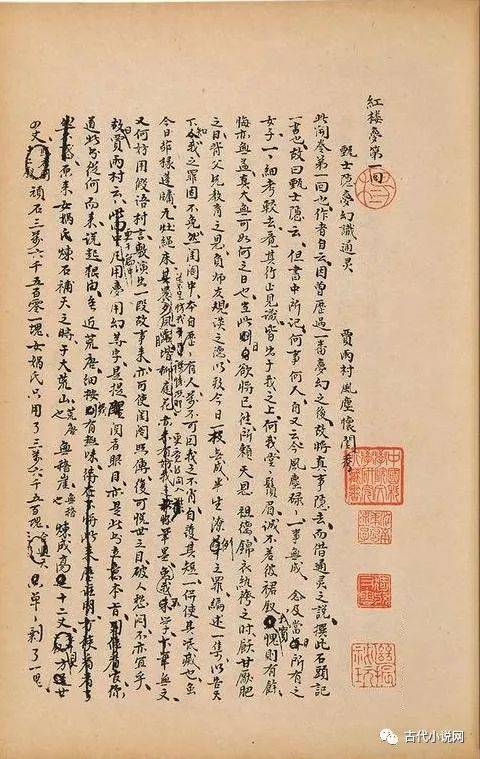 紅楼夢第一回
甄士隐夢幻識通灵 賈雨村風塵懷閨秀
此開卷第一回也作者自云因曾歷過一番夢幻之後故將真事隐去而借通灵之說撰此石頭記
一書也故曰甄士隐云但書中所記何事何人自又云今風塵碌一事無成念及當日所有之
女子一細考較去覺其行止見識皆出于我之上何我堂鬚眉誠不若彼裙釵我實愧則有餘
悔亦無益真大無可如何之日也當此則自欲將已往所賴天恩祖德錦衣紈袴之时飫甘厭肥
之日背父兄教育之恩負师友規談之德以致今日一技無成半生潦倒之罪編述一集以告天
下人知我之罪固不免然閨阁中本自歷有人萬不可因我之不肖自護其短一併使其泯滅也虽
今日茆椽蓬牖瓦灶绳床其晨夕風露堦柳庭花亦未有筆墨虽我未学下筆無文
又何妨用假語村言敷演出一段故事来亦可使閨阁照傳復可悦世之目破人愁闷不亦宜乎
故賈雨村云此回中凡用夢用幻等字是提醒閱者眼目亦是此书立意本旨列位看官你
道此书從何而来說起根由虽近荒唐細按則有趣味待在下將此来歷註明方使閱者了
然不惑原来女媧氏煉石補天之時于大荒山無稽崖煉成高十二丈方廿
四丈頑石三萬六千五百零一塊女媧氏只用了三万六千五百塊单单剩了一塊
古代小说网